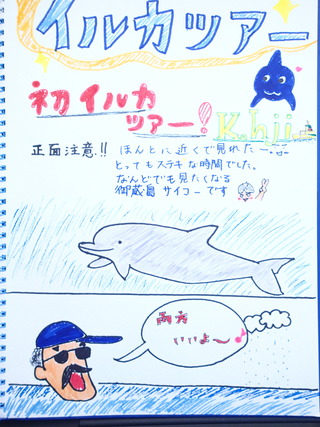 イルカツアー
初イルカ
ツアー!
K.hji
正面注意!!
ほんとに近くで見れたー。
とってもステキな時間でした。
なんどでも見たくなる
御蔵島 サイコーです
両方
いいよ〜